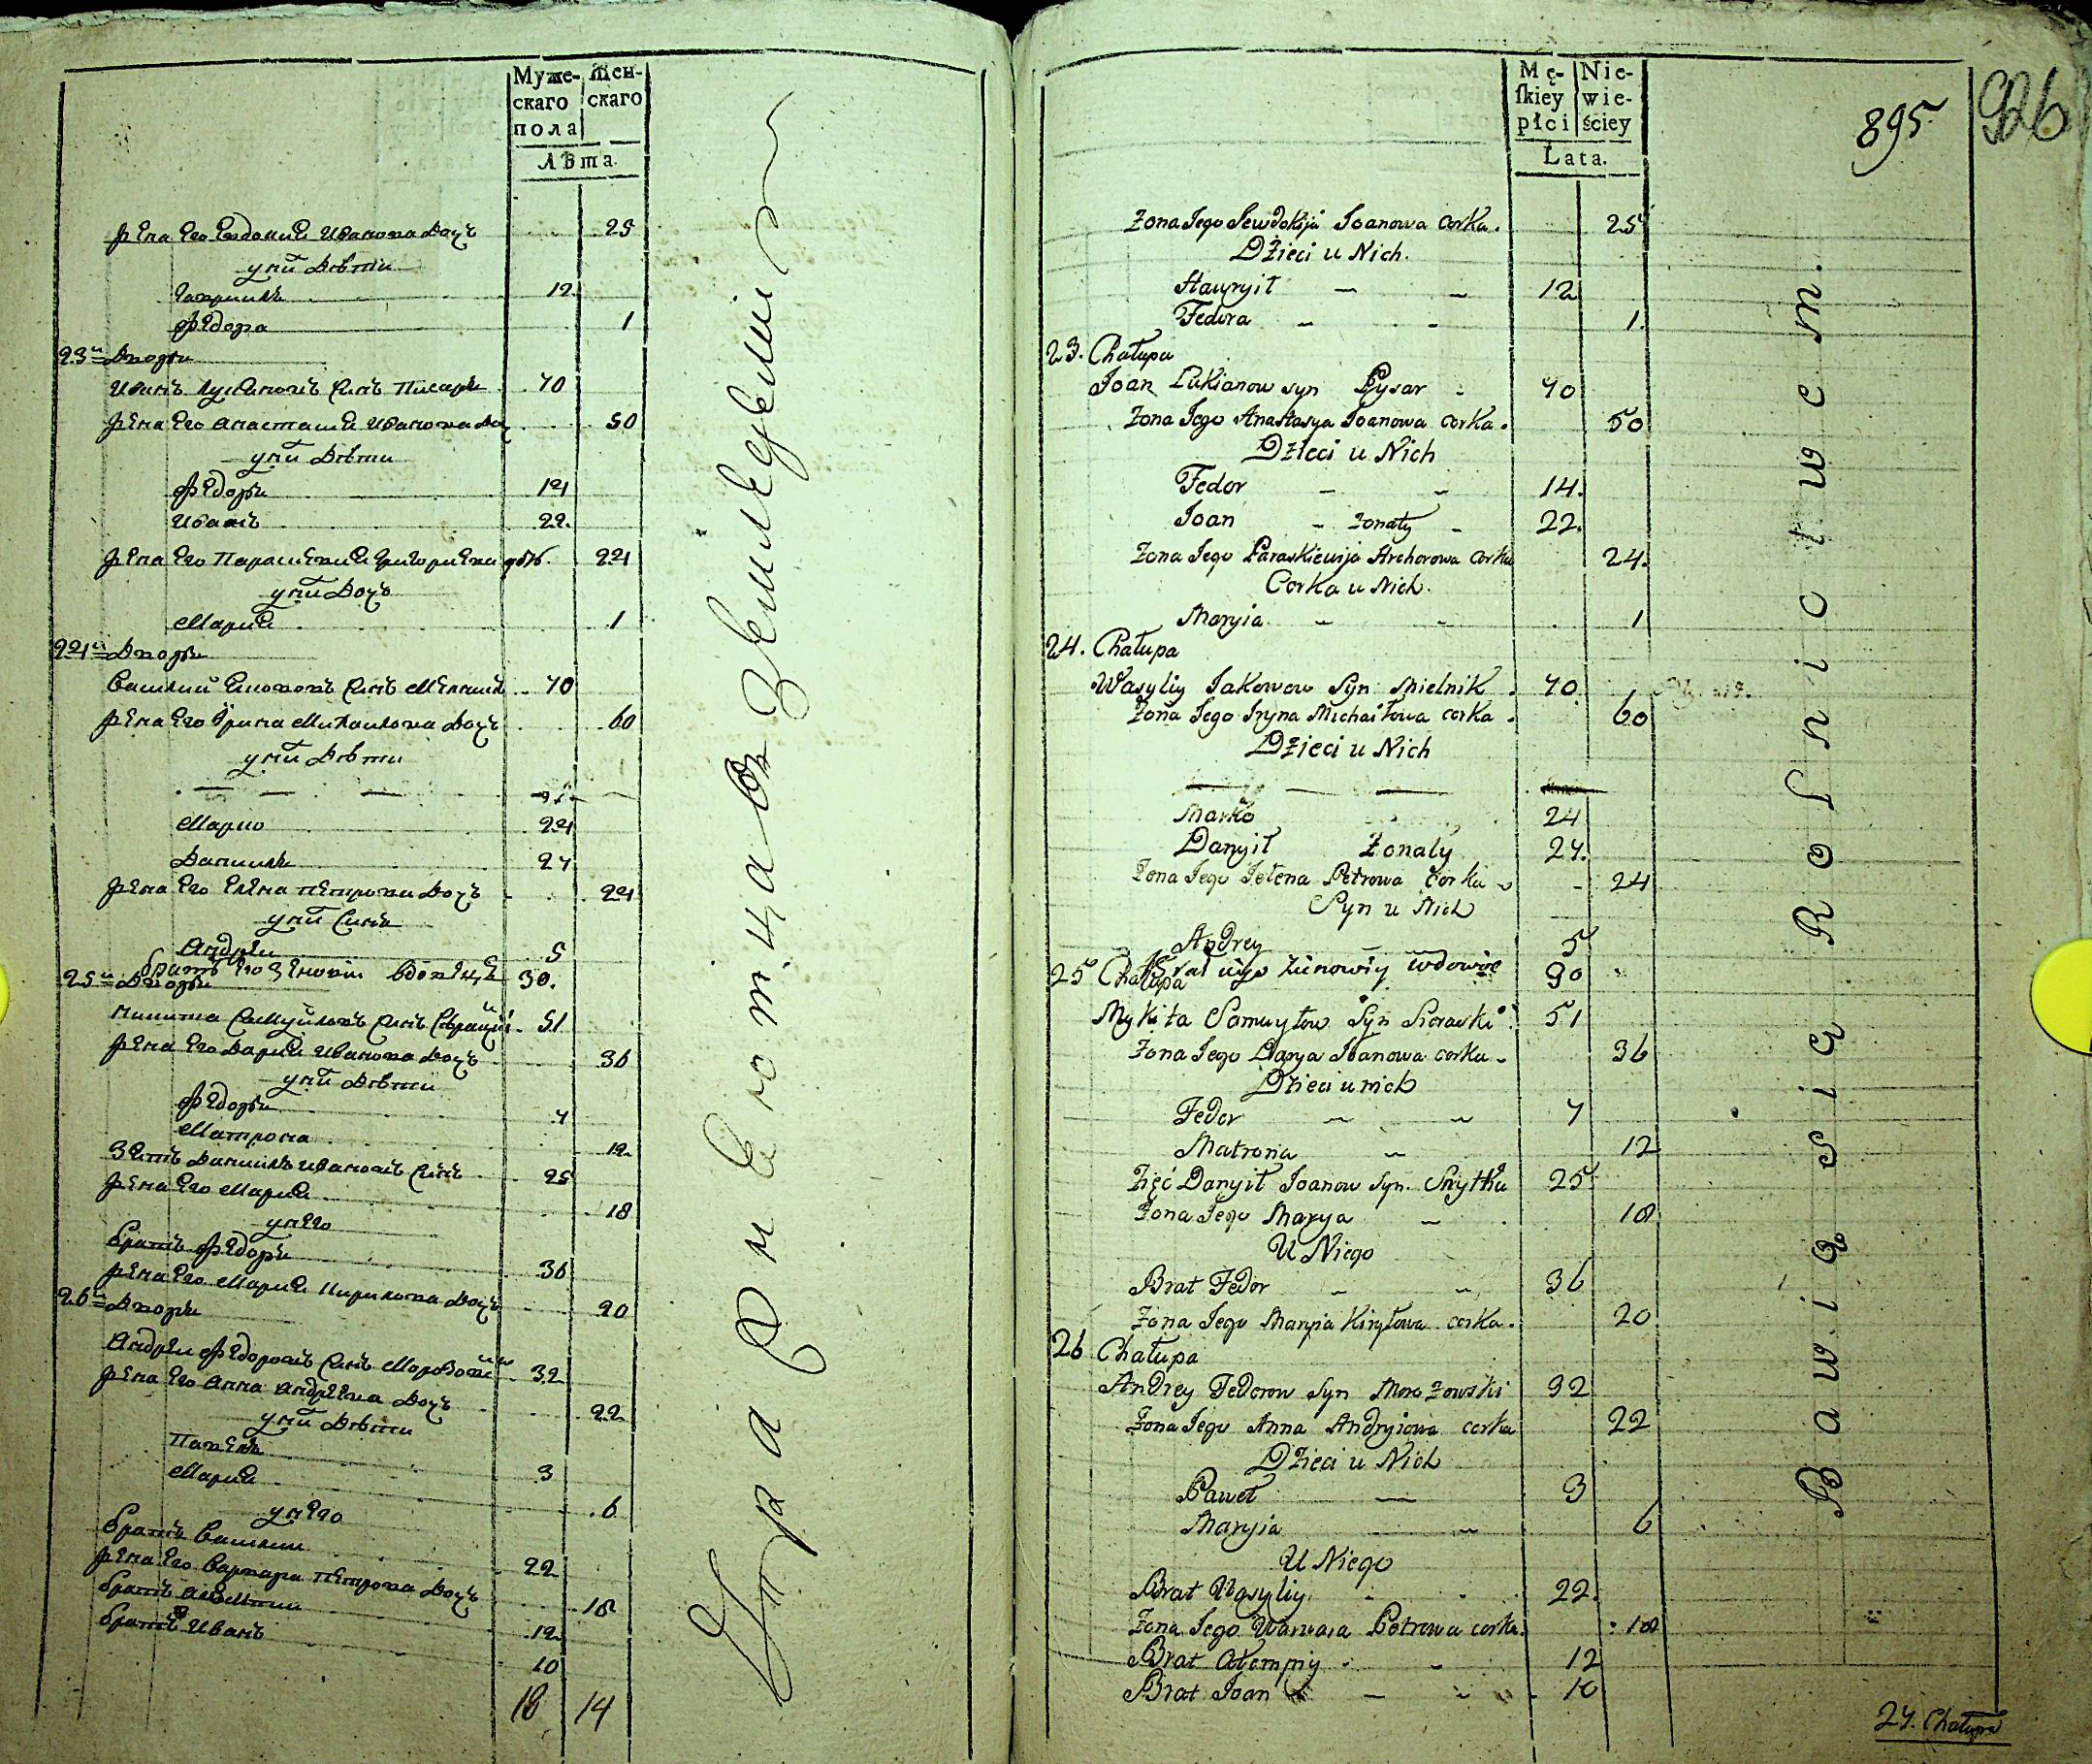 Муже- Жен-
скаго скаго
пола
Лѣта.
Жена Его Евдокия Иванова Дочь 25
у них Дѣти
Гавриилъ 12
Федора 1
23 й Дворъ
Иванъ Лукяновъ Сынъ Писаръ 70
Жена Его Анастасия Иванова Доч 50
у них Дѣти
Федоръ 14
Иванъ 22.
Жена Его Параскевия Григориева 24
у них Дочь
Мария 1
24 й Дворъ
Василий Якововъ Сынъ Мелникъ 70
Жена Его Ирина Михаилова Дочь 60
у них Дѣти
Марко 24
Даниилъ 27
Жена Его Елена Петрова Дочь 24
у них Сынъ
Андрей 5
братъ Его Зѣновий вдовецъ 30.
25 й Дворъ
Никита Самуйловъ Сынъ 51
Жена Его Дария Иванова Дочь 36
у них Дѣти
Федоръ 7
Матрона 12
Зять Даниилъ Ивановъ Сынъ 25
Жена Его Мария 18
у него
братъ Федоръ 36
Жена Его Мария Кирилова Дочь 20
26 й Дворъ
Андрей Федоровъ Сынъ Морозовский 32
Жена Его Анна Андреева Дочь 22
у них Дѣти
Павелъ 3
Мария 6
у него
братъ Василий 22
Жена Его Варвара Петрова Дочь 18
братъ 12
братъ Иванъ 10
18 14
Упражняются въ Земледелии
Mę- Nie-
ſkiey wie-
płci ściey
Lata.
895
926
Zona Jego Jewdokija Joanowa corka. 25
Dzieci u Nich.
Hawryił 12
Fedora 1.
23. Chałupa
Joan Lukianow syn Pysar 70
Zona Jego Anastasya Joanowa corka. 50
Dzieci u Nich
Fedor 14.
Joan zonaty 22.
Zona Jego Paraskiewija Hrehorowa corka 24.
Corka u Nich.
Maryia 1
24. Chałupa
Wasyliy Jakowow Syn Mielnik 70
Zona Jego Iryna Michaiłowa corka 60
Dzieci u Nich
Marko 24
Danyił Zonaty 27.
Zona Jego Jełena Petrowa Corka 24
Syn u Nich
Andrey 5
Brat iego Zinowiy wdowiec 30
25 Chałupa
Mykita Samuyłow Syn 51
Zona Jego Darya Joanowa corka 36
Dzieci u nich
Fedor 7
Matrona 12
Zięć Danyił Joanow Syn Snytka 25.
Zona Jego Marya 18
U Niego
Brat Fedor 36
Zona Jego Maryia Kiryłowa corka. 20
26 Chałupa
Andrey Fedorow Syn Morozowski 32
Zona Jego Anna Andryiowa corka 22
Dzieci u Nich
Paweł 3
Maryia 6
U Niego
Brat Wasyliy 22.
Zona Jego Warwara Petrowa corka. 18
Brat 12
Brat Joan 10
Bawią się Rolnictwem.
27. Chałupa